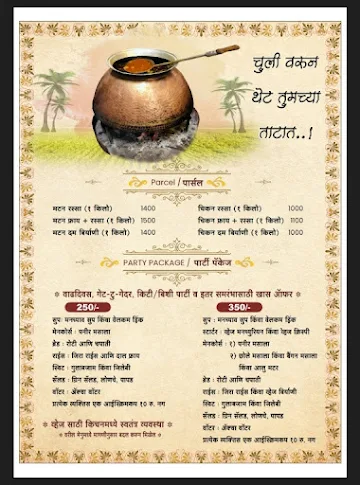 चुली वरून
थेट तुमच्या
ताटात..!
Parcel / पार्सल
मटन रस्सा (१ किलो) 1400
मटन फ्राय + रस्सा (१ किलो) 1500
मटन दम बिर्याणी (१ किलो) 1400
चिकन रस्सा (१ किलो) 1000
चिकन फ्राय + रस्सा (१ किलो) 1100
चिकन दम बिर्याणी (१ किलो) 1000
PARTY PACKAGE / पार्टी पॅकेज
वाढदिवस, गेट-टु-गेदर, किटी/बिशी पार्टी व इतर समारंभासाठी खास ऑफर
250/-
सुप: मनच्याव सुप किंवा वेलकम ड्रिंक
मेनकोर्स : पनीर मसाला
ब्रेड : रोटी आणि चपाती
राईस : जिरा राईस आणि दाल फ्राय
स्विट : गुलाबजाम किंवा जिलेबी
सॅलड: ग्रिन सॅलड, लोणचे, पापड
वॉटर: अ‍ॅक्वा वॉटर
प्रत्येक व्यक्तिस एक आईस्क्रिमकप १० रु. नग
व्हेज साठी किचनमध्ये स्वतंत्र व्यवस्था
वरील मेनुमध्ये मागणीनुसार बदल करून मिळेल
350/-
सुप: मनच्याव सुप किंवा वेलकम ड्रिंक
स्टार्टर : व्हेज मनच्युरियन किंवा व्हेज क्रिस्पी
मेनकोर्स : १) पनीर मसाला
२) छोले मसाला किंवा बैंगन मसाला
किंवा आलु मटर
ब्रेड: रोटी आणि चपाती
राईस: जिरा राईस किंवा व्हेज बिर्याणी
स्विट: गुलाबजाम किंवा जिलेबी
सॅलड: ग्रिन सॅलड, लोणचे, पापड
वॉटर: अ‍ॅक्वा वॉटर
प्रत्येक व्यक्तिस एक आईस्क्रिमकप १० रु. नग